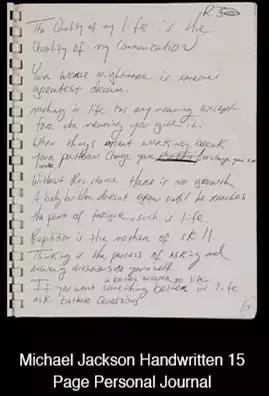 The Quality of my life is the
Quality of my Communication
Your worse nightmare is someone's
greatest dream.
nothing in life has any meaning except
for the meaning you give it.
When things arent working, break
your patterns change your to change your
Without Resistance there is no growth
A body builder doesnt grow until he reaches
the point of fatigue, such is life.
Repitition is the mother of skill.
Thinking is the process of asking and
answering questions to yourself.
a better answer to life
If you want something better in life
ask better Questions
Michael Jackson Handwritten 15
Page Personal Journal